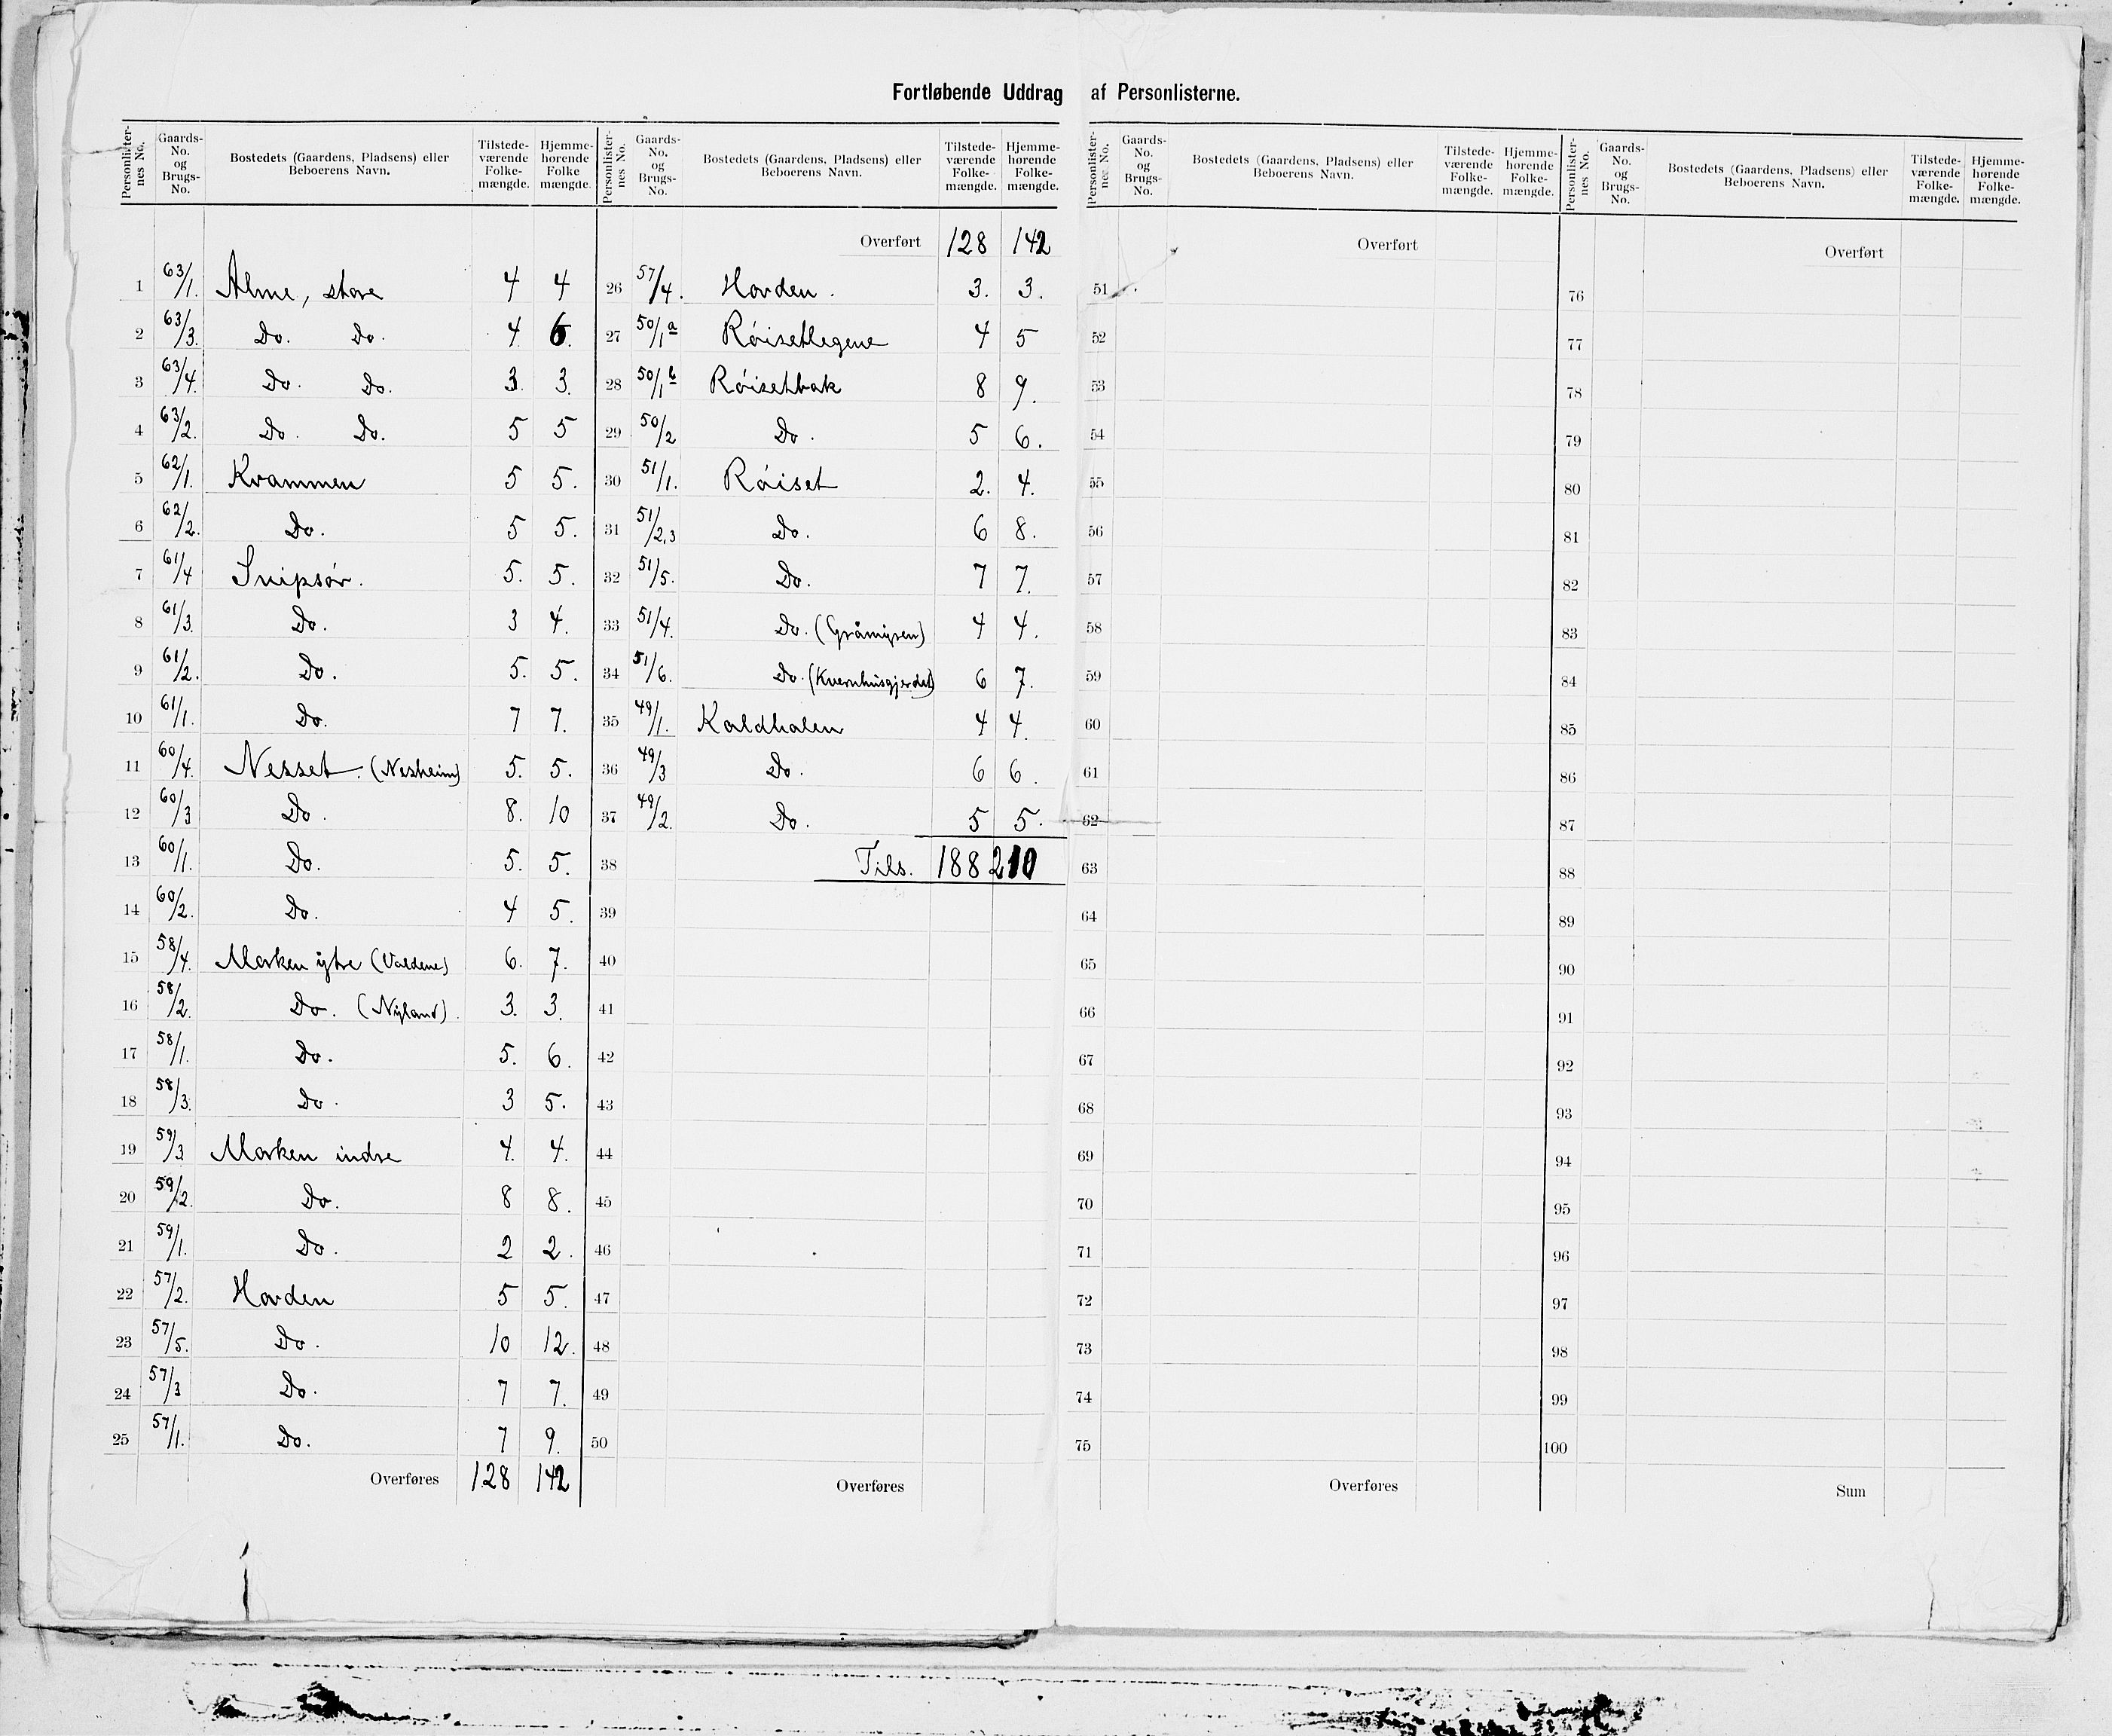 Fortløbende Uddrag af Personlisterne.
Personlisternes No. Gaards-No. og Brugs-No. Bostedets (Gaardens, Pladsens) eller Beboerens Navn. Tilstedeværende Folkemængde. Hjemmehørende Folkemængde.
1 63/1. Alme, store 4 4
2 63/3. Do. Do. 4. 6.
3 63/4. Do. Do. 3. 3.
4 63/2. Do. Do. 5 5
5 62/1. Kvammen 5 5.
6 62/2. Do. 5 5.
7 61/4 Snipsør. 5. 5.
8 61/3. Do. 3 4.
9 61/2. Do. 5. 5.
10 61/1. Do. 7 7.
11 60/4. Nesset. (Nesheim) 5. 5.
12 60/3 Do. 8. 10
13 60/1. Do. 5. 5.
14 60/2. Do. 4 5.
15 58/4. Morken ytre (Valdene) 6. 7.
16 58/2. Do. (Nyland). 3. 3.
17 58/1. Do. 5. 6.
18 58/3. Do. 3 5.
19 59/3 Morken indre 4. 4.
20 59/2. Do. 8 8.
21 59/1. Do. 2 2.
22 57/2. Horden 5 5.
23 57/5. Do. 10 12.
24 57/3 Do. 7 7.
25 57/1. Do. 7 9.
Overføres 128 142
Personlisternes No. Gaards-No. og Brugs-No. Bostedets (Gaardens, Pladsens) eller Beboerens Navn. Tilstedeværende Folkemængde. Hjemmehørende Folkemængde.
Overført 128 142
26 57/4. Horden. 3. 3.
27 50/1 a Røisetlegene 4 5
28 50/1 b Røisetbak 8 9.
29 50/2 Do. 5 6.
30 51/1. Røiset 2. 4.
31 51/2,3 Do. 6 8.
32 51/5. Do. 7 7.
33 51/4. Do. (Gråmyren) 4 4.
34 51/6. Do. (Kvernhusgjerdet) 6 7.
35 49/1. Koldhalen 4 4.
36 49/3 Do. 6 6.
37 49/2. Do. 5 5.
38 Tils. 188 210
39
40
41
42
43
44
45
46
47
48
49
50
Overføres
Personlisternes No. Gaards-No. og Brugs-No. Bostedets (Gaardens, Pladsens) eller Beboerens Navn. Tilstedeværende Folkemængde. Hjemmehørende Folkemængde.
Overført
51
52
53
54
55
56
57
58
59
60
61
62
63
64
65
66
67
68
69
70
71
72
73
74
75
Overføres
Personlisternes No. Gaards-No. og Brugs-No. Bostedets (Gaardens, Pladsens) eller Beboerens Navn. Tilstedeværende Folkemængde. Hjemmehørende Folkemængde.
Overført
76
77
78
79
80
81
82
83
84
85
86
87
88
89
90
91
92
93
94
95
96
97
98
99
100
Sum